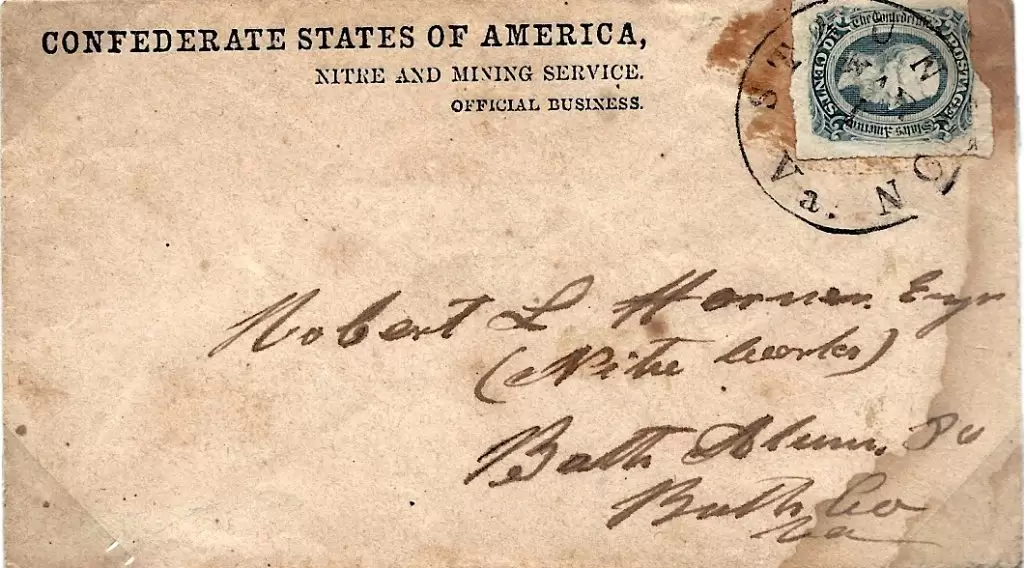 CONFEDERATE STATES OF AMERICA,
NITRE AND MINING SERVICE.
OFFICIAL BUSINESS.
The Confederate
States America
POSTAGE
CENTS
STAUNTON Va.
Robert L
(Nitre Works)
Bath Alum,
Bath Co
Va